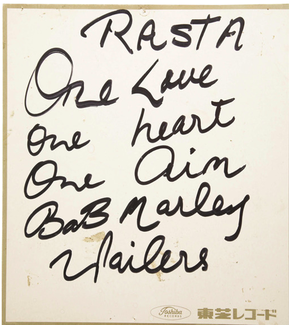 RASTA
One Love
one heart
One Aim
BoB Marley
Wailers
Toshiba
RECORDS
東芝レコード